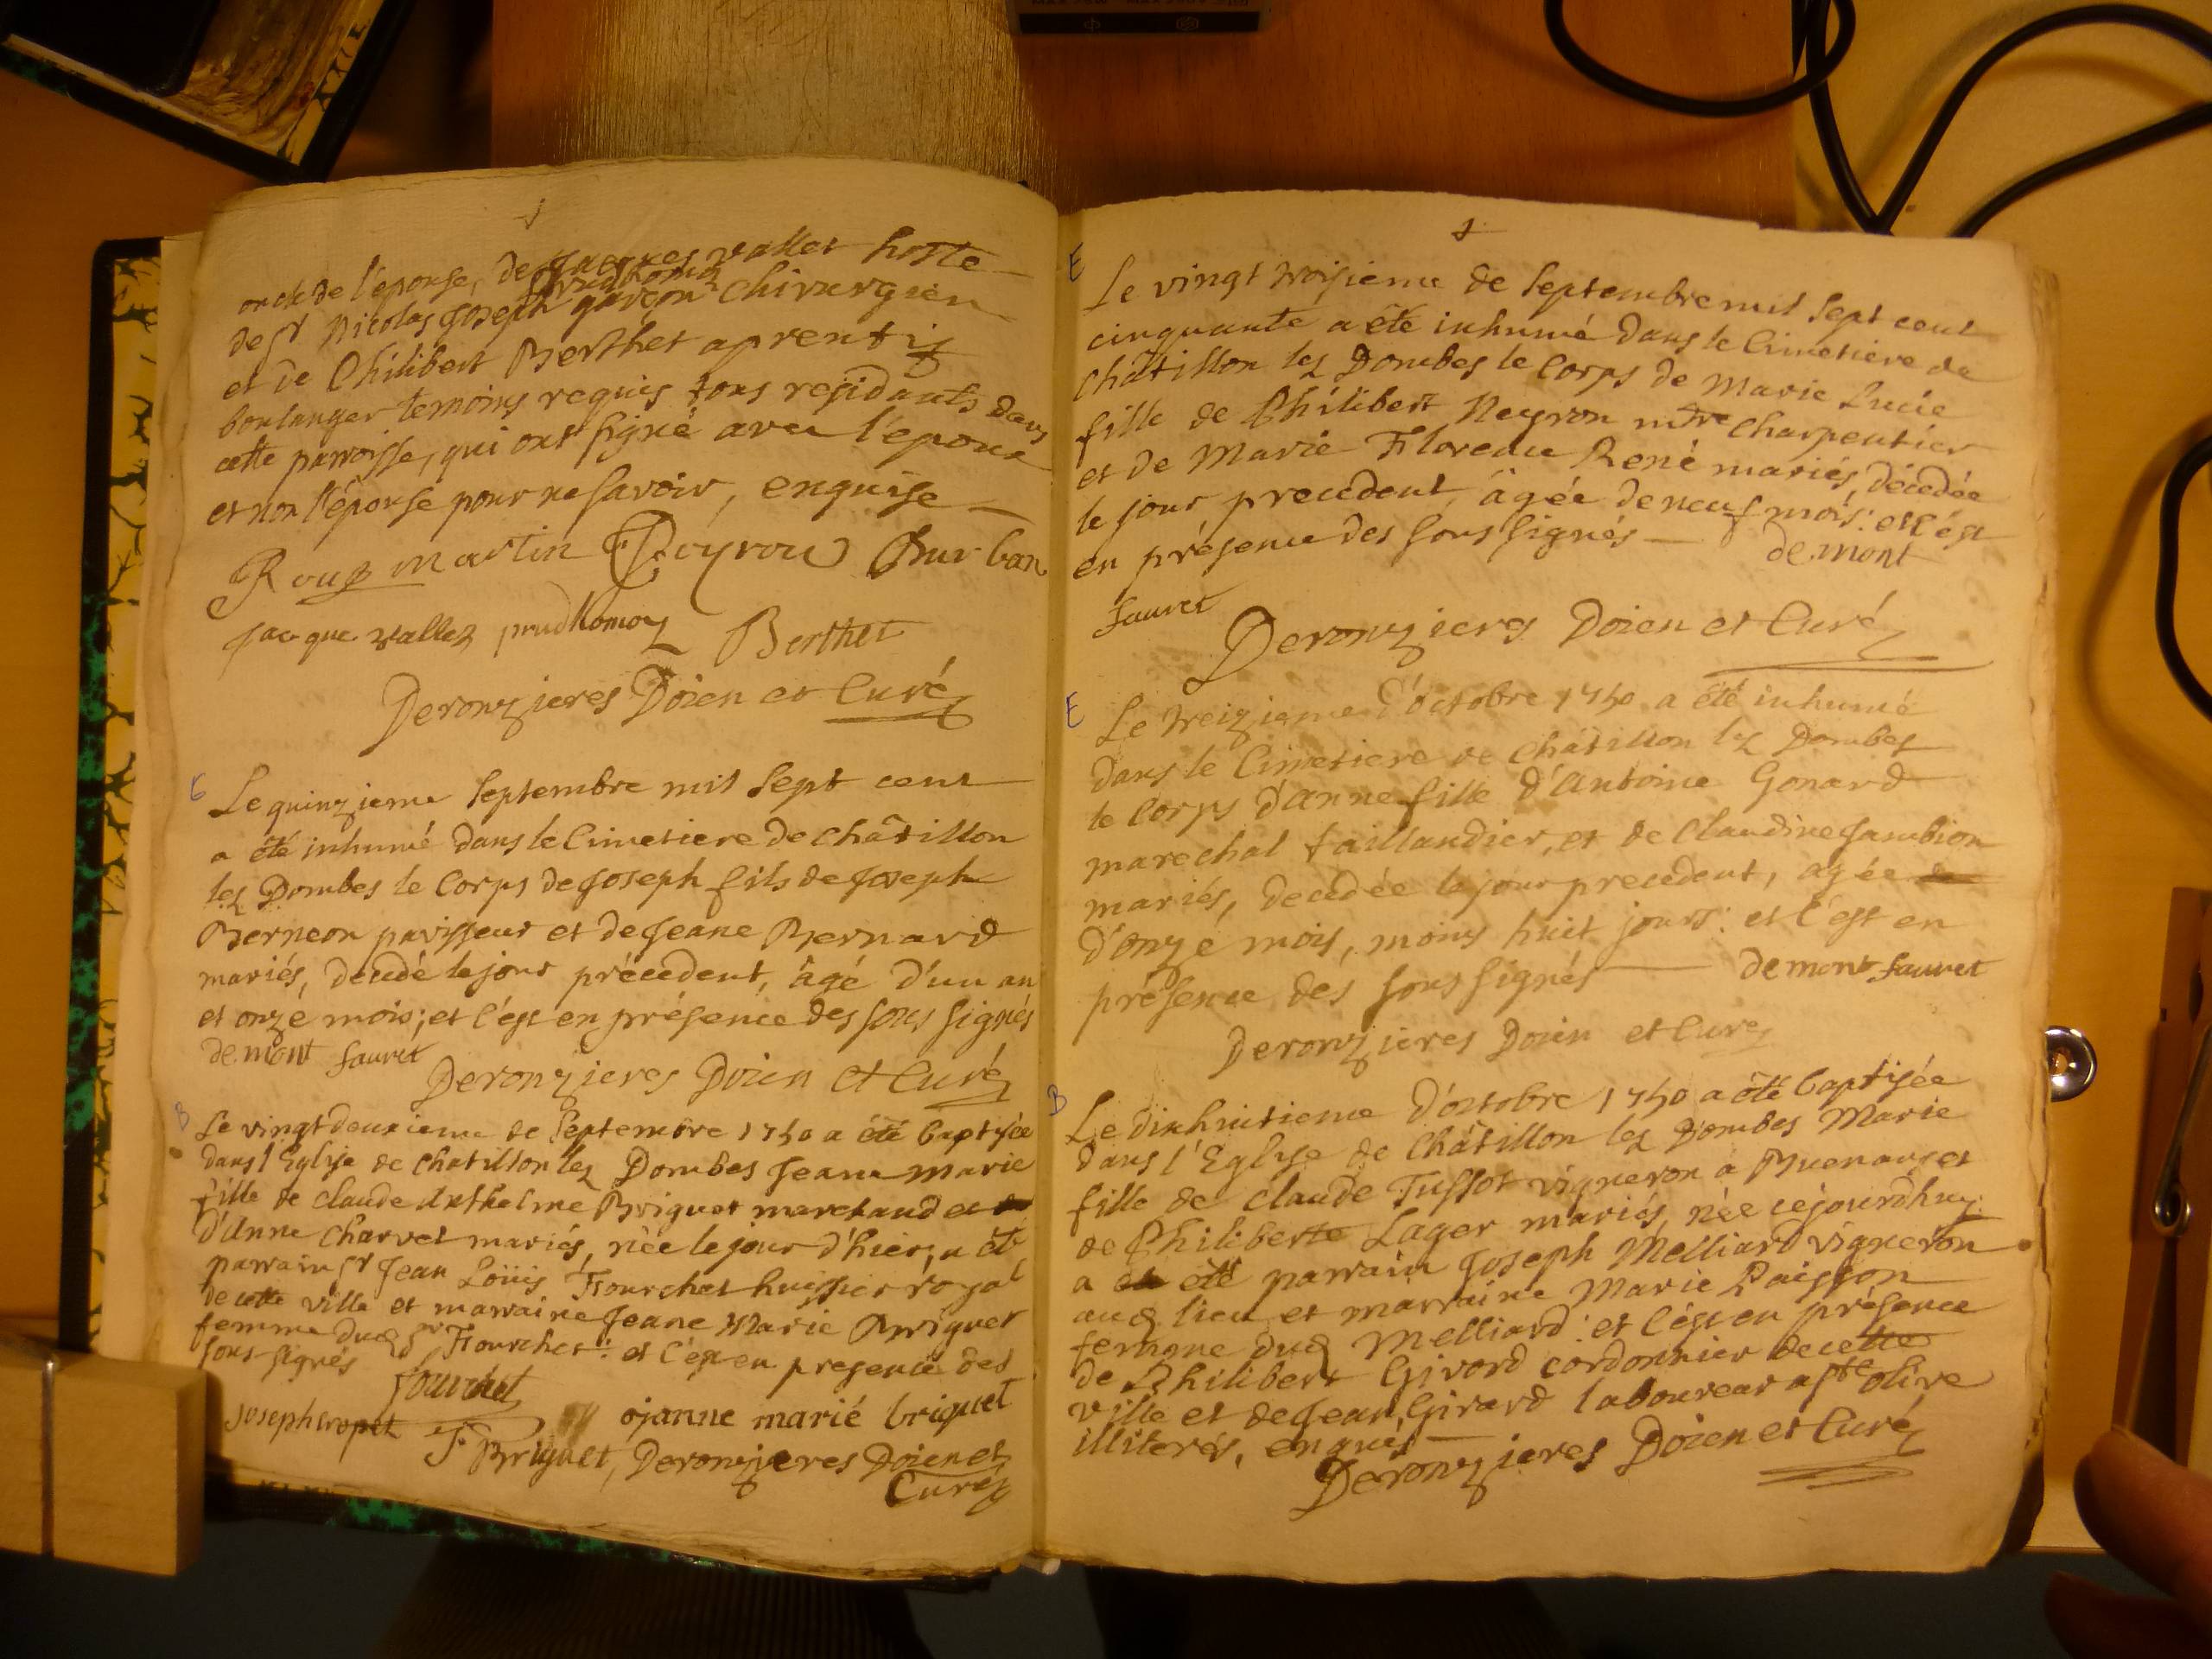 oncle de l'épouse, de Jacques vallet hoste
de Sr Nicolas Joseph prudhomoz garçon Chirurgien
et de Philibert Berthet aprentis
boulanger temoins requis tous residants dans
cette parroisse, qui ont signé avec l'epoux
et non l'épouse pour ne savoir, enquise
Roux martin Peyrou Burban
Jacque vallez prudhomoz Berthet
Deronzieres Doien et Curé
E
Le quinzieme Septembre mil Sept cent
a été inhumé dans le Cimetiere de châtillon
les Dombes le Corps de Joseph fils de Joseph
Berneon pavisseur et de Jeane Bernard
mariés, decedé le jour précedent, âgé d'un an
et onze mois; et c'est en présence des sous signés
demont fauret
Deronzieres Doien et Curé
B
Le vingt deuxieme de Septembre 1750 a été baptisée
dans l'Eglise de chatillon les Dombes Jeane marie
fille de claude Anthelme Briguet marchand et
d'Anne Charvet mariés, née le jour d'hier, a été
parrain Sr Jean Loüis Fourchet huissier royal
de cette ville et marraine Jeane Marie Briguet
femme dud sr Fourchet: et c'est en presence des
sous-signés fourchet
Joseph cropet ojanne marié briguet
F Briguet, Deronzieres Doien et
Curé
E
Le vingt troisieme de Septembre mil Sept cent
cinquante a été inhumé dans le Cimetiere de
Châtillon les Dombes le Corps de Marie Lucie
fille de Philibert Neyron mtre charpentier
et de Marie Floreaue René mariés, décedée
le jour precedent, âgée de neuf mois: et c'est
en présence des sous signés demont
fauret
Deronzieres Doien et Curé
E
Le treizieme d'octobre 1750 a été inhumé
dans le Cimetiere de châtillon les Dombes
le Corps d'anne fille d'Antoine Gonard
marechal taillandier, et de claudine Jambion
mariés, decedée le jour precedent, agée
d'onze mois, moins huit jours: et c'est en
présence des sous signés demont fauret
Deronzieres Doien et Curé
B
Le dixhuitieme d'octobre 1750 a été baptisée
dans l'Eglise de Châtillon les Dombes Marie
fille de claude Tuffot vigneron a Buenans et
de Philiberte Lager mariés, née cejourdhuy.
a été parrain Joseph Melliard vigneron
aud lieu et marraine Marie Paisson
femme dud Melliard: et c'est en présence
de Philibert Girard cordonnier de cette
ville et de Jean Girard laboureur a ste olive
illiterés, enquis
Deronzieres Doien et Curé